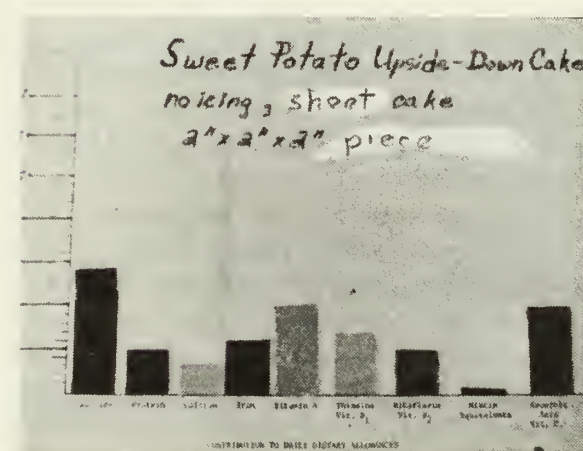 Sweet Potato Upside-Down Cake
no icing, sheet cake
2" x 2" x 2" piece
Protein Calcium Iron Vitamin A Thiamine Riboflavin Niacin Ascorbic
Vit. B1 Vit. B2 Equivalents Acid
Vit. C
CONTRIBUTION TO DAILY DIETARY ALLOWANCES